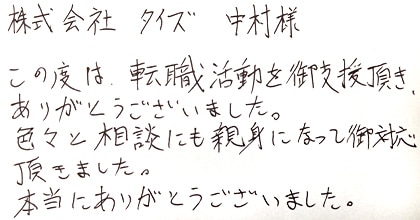 株式会社 タイズ 中村様
この度は、転職活動を御支援頂き、
ありがとうございました。
色々と相談にも親身になって御対応
頂きました。
本当にありがとうございました。